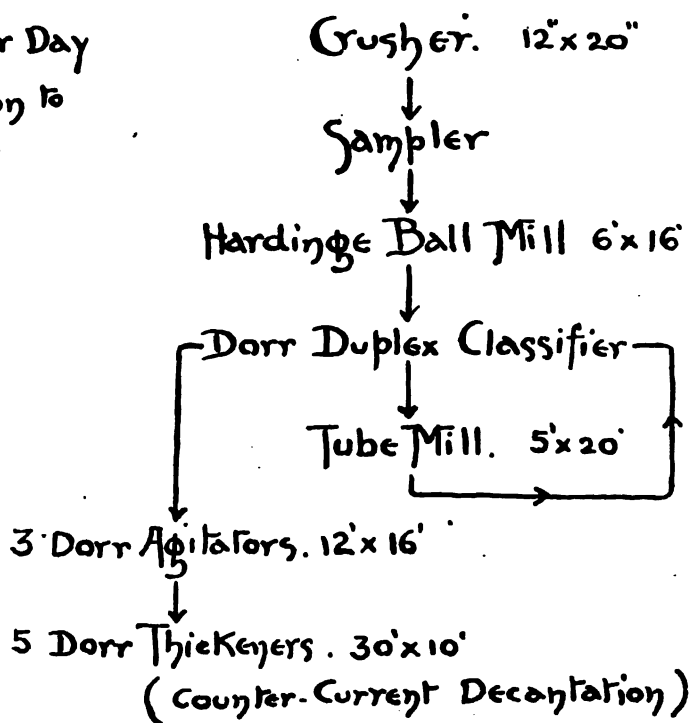 r Day
on to
Crusher. 12"x 20"
Sampler
Hardinge Ball Mill 6'x 16'
Dorr Duplex Classifier
Tube Mill. 5'x 20'
3 Dorr Agitators. 12'x 16'
5 Dorr Thickeners. 30'x 10'
(Counter-Current Decantation)